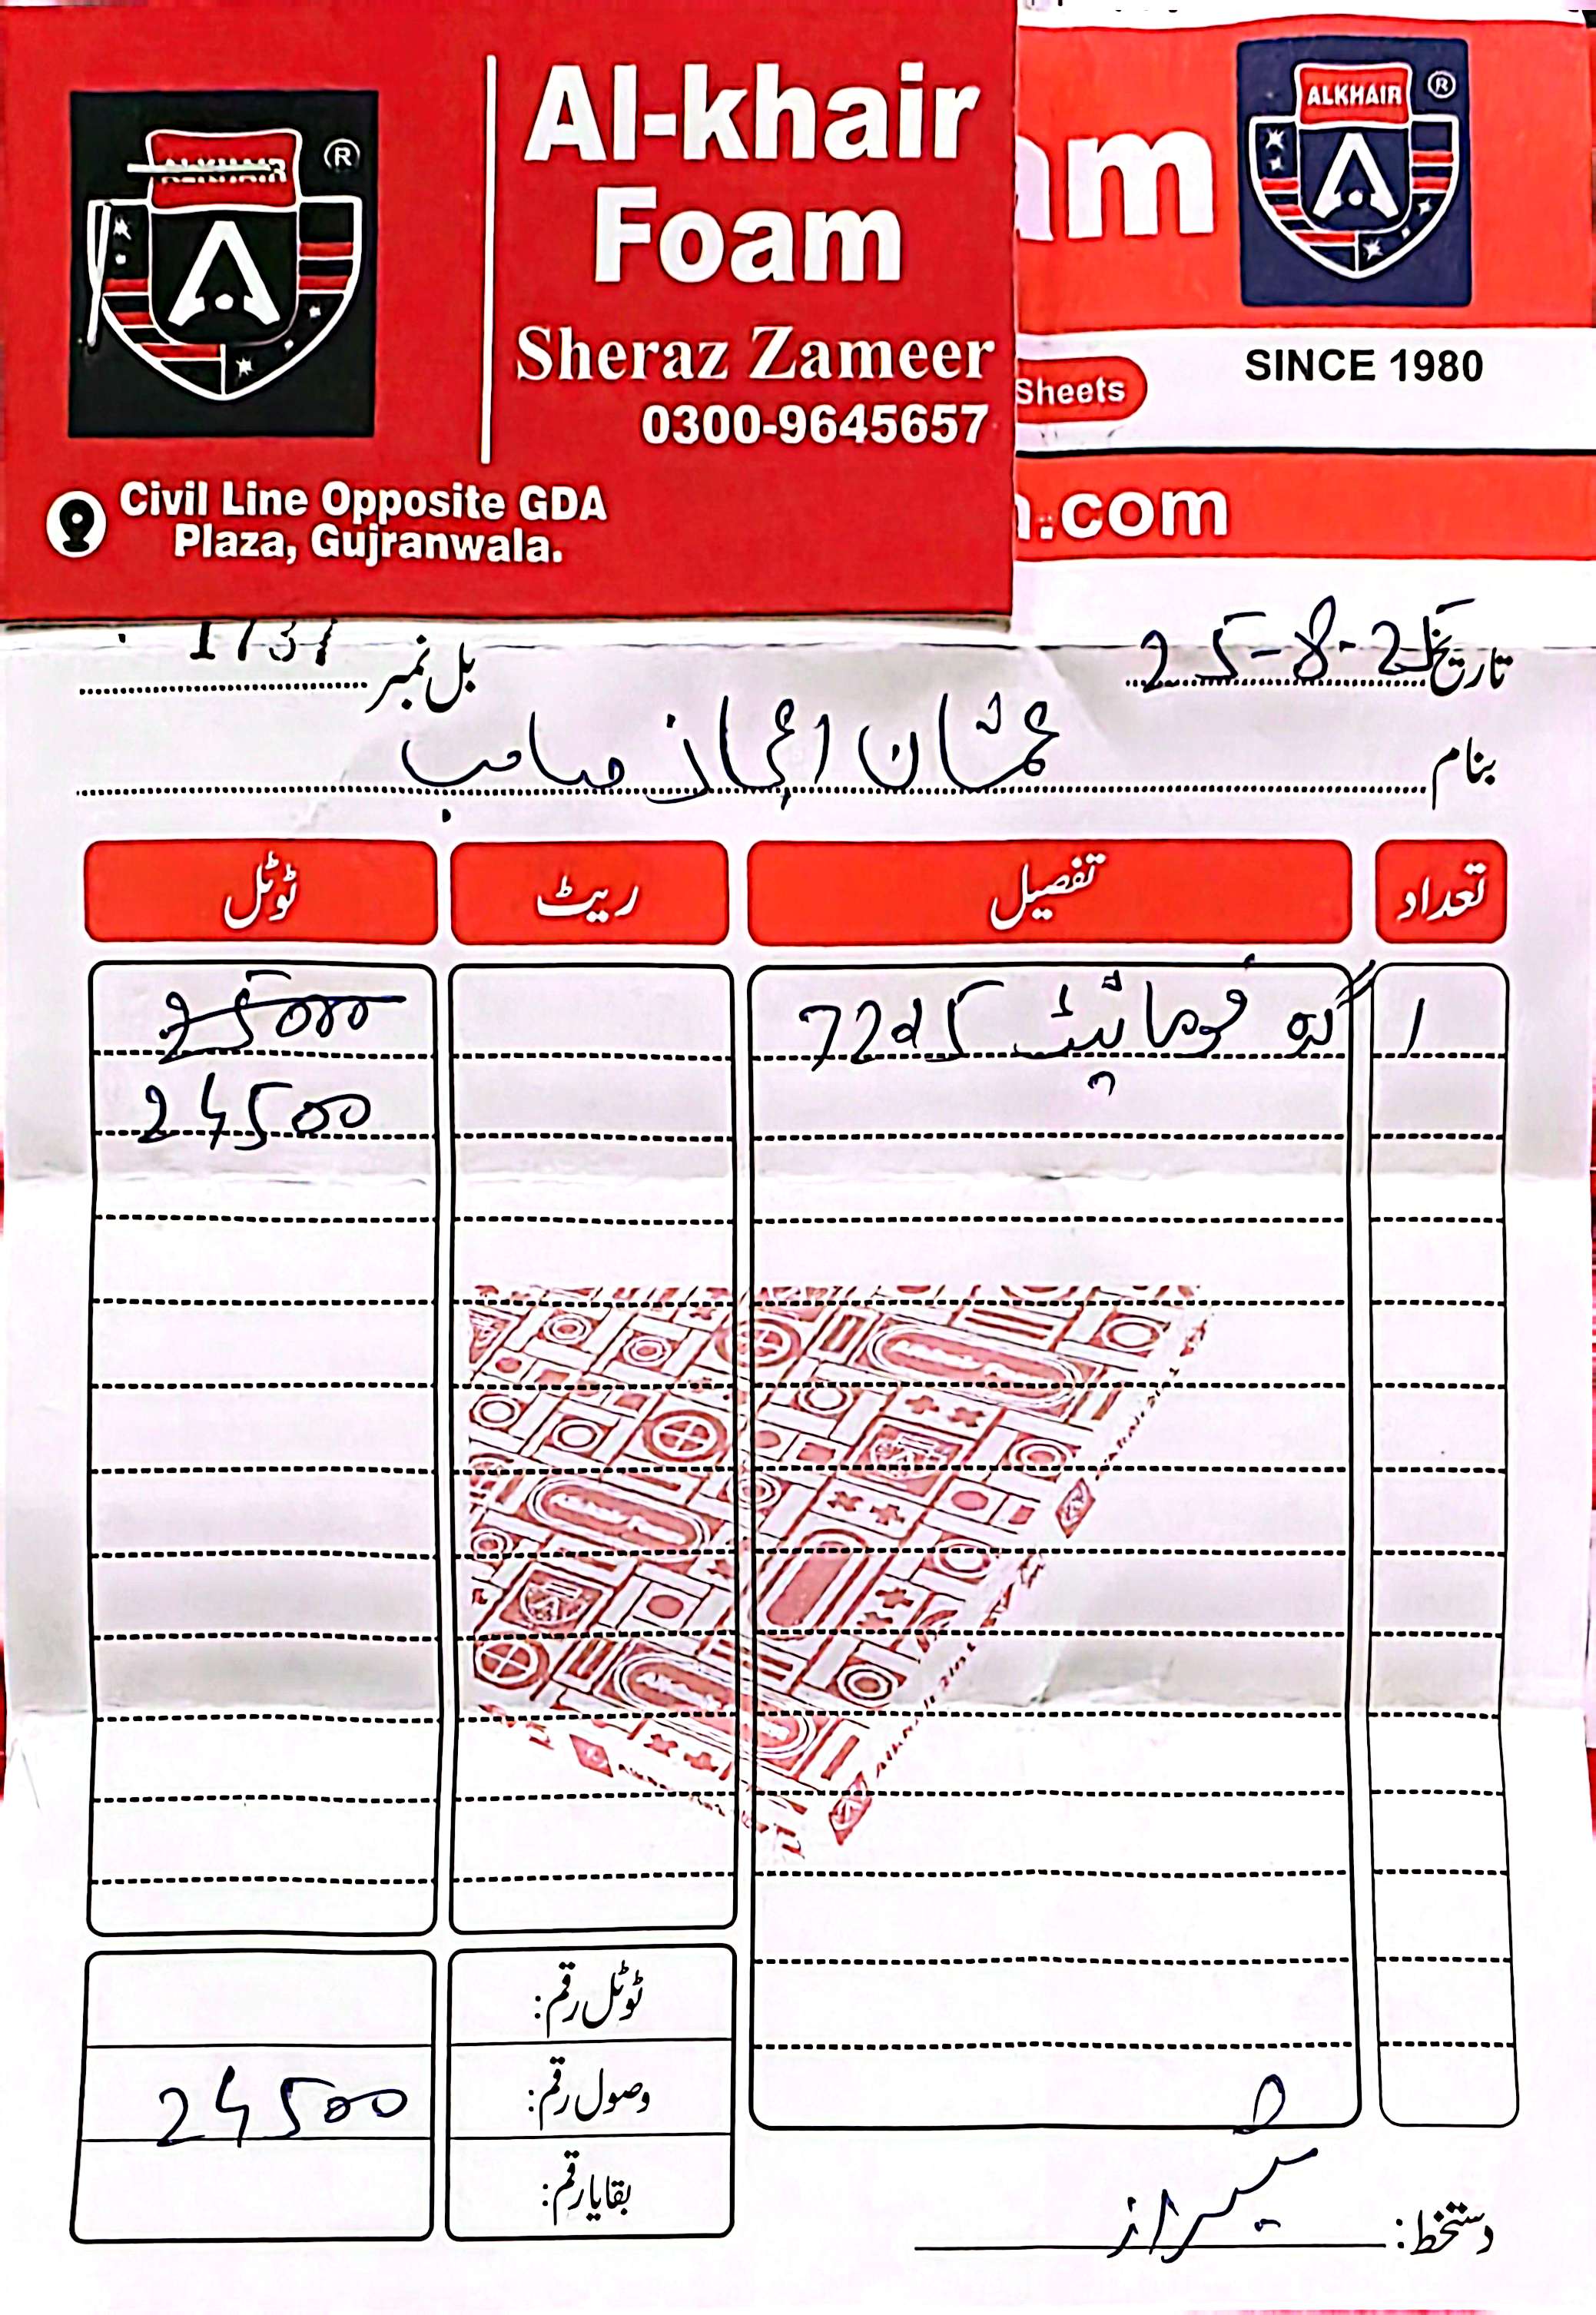 ALKHAIR ®
Al-khair
Foam
Sheraz Zameer
0300-9645657
Civil Line Opposite GDA
Plaza, Gujranwala.
am
ALKHAIR ®
SINCE 1980
Sheets
.com
تاریخ 25-8-25
بل نمبر
بنام عثمان اعجاز صاحب
تعداد تفصیل ریٹ ٹوٹل
1 گدہ 25000
24500
ٹوٹل رقم:
وصول رقم: 24500
بقایا رقم:
دستخط: شیراز